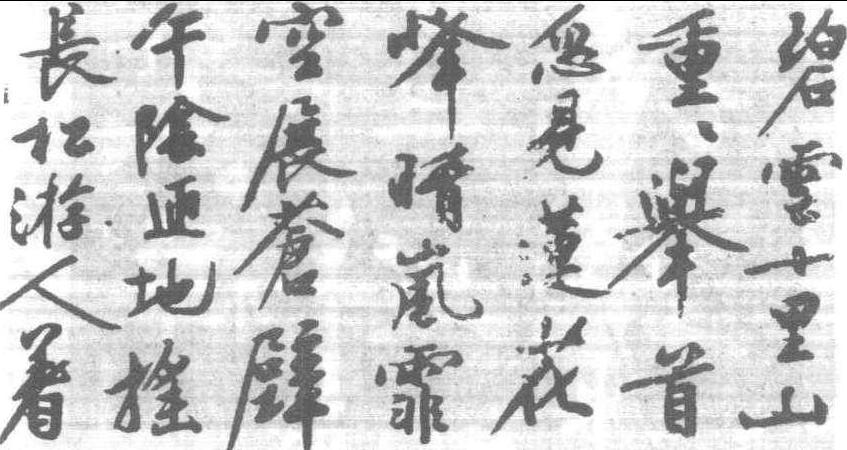 碧雲十里山
重〻舉首
忽見蓮花
峰晴嵐霏
空展蒼壁
午陰匝地搖
長松游人着